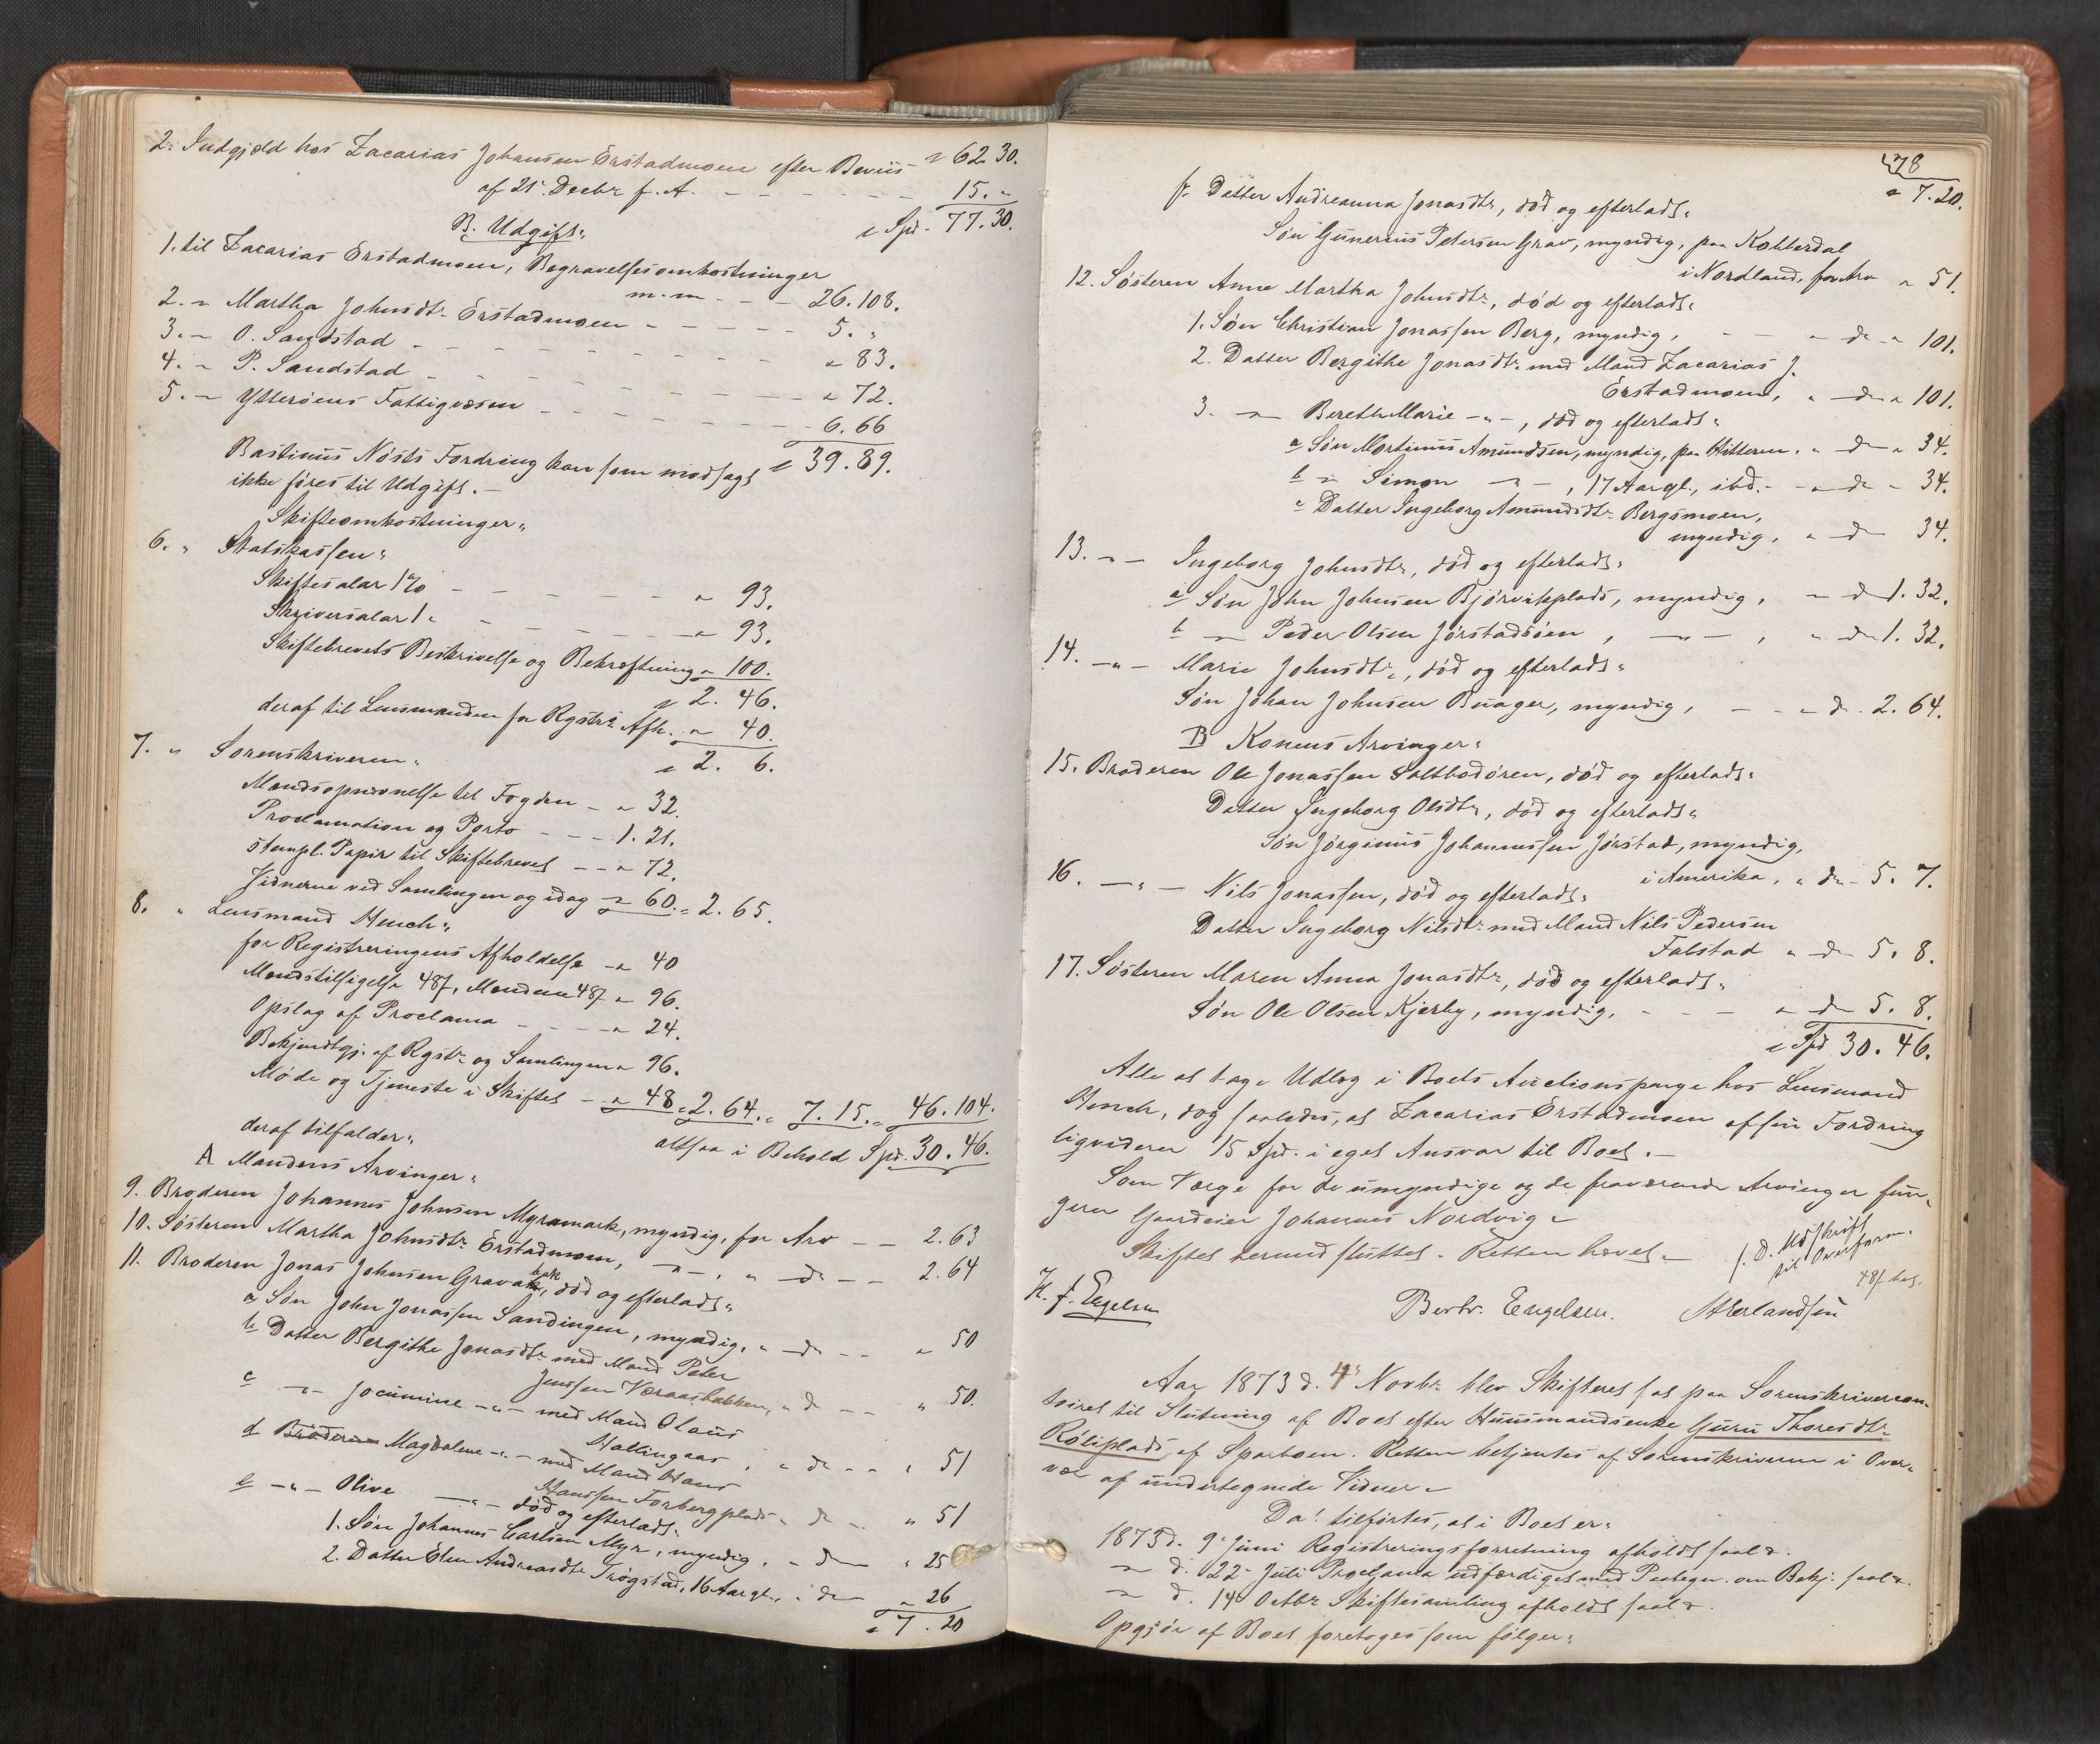 2. Indgjæld hos Zacarias Johansen Erstadmoen efter Beviis " 62 30.
af 21. Decbr f. A. - - - - - - 15. "
" Spd. 77. 30.
B. Udgift:
1. til Zacarias Erstadmoen, Begravelsesomkostninger
m.m. - - - 26. 108.
2. " Martha Johnsdtr Erstadmoen - - - - - 5. "
3. " O. Sandstad - - - - - - - - " 83.
4. " P. Sandstad - - - - - - - - " 72.
5. " Ytterøens Fattigvæsen - - - - - - 6. 66
" 39. 89.
Bastinus Nøsts Fordring kan som modsagt
ikke føres til Udgift. -
Skifteomkostninger:
6. " Statskassen:
Skiftesalar 1% - - - - - " 93.
Skriversalar 1 " - - - - - " 93.
Skiftebrevets Beskrivelse og Bekræftning " 100.
" 2. 46.
deraf til Lensmanden for Rgstr. Afh. " 40.
" 2. 6.
7. " Sorenskriveren:
Mandsopnævnelse til Fogden - " 32.
Proclamation og Porto - - - 1. 21.
stempl. Papir til Skiftebrevet - - " 72.
Vidnerne ved Samlingen og idag " 60. = 2. 65.
8. " Lensmand Hench:
for Registreringens Afholdelse - " 40
Mandstilsigelse 48ſ, Mændene 48ſ " 96.
Opslag af Proclama - - - - " 24.
Bekjendtgj. af Rgstr. og Samlingen " 96.
Møde og Tjeneste i Skiftet - " 48 = 2. 64. = 7. 15. = 46. 104.
altsaa i Behold Spd. 30. 46.
deraf tilfalder:
A Mandens Arvinger:
9. Broderen Johannes Johnsen Myramark, myndig, for Arv - - 2. 63
10. Søsteren Martha Johnsdtr Erstadmoen, - " - , " do - - 2. 64
11. Broderen Jonas Johnsen Gravbak, død og efterladt:
a Søn John Jonassen Sandingen, myndig, " do - - " 50
b Datter Bergithe Jonasdtr med Mand Peter
Jenssen Væraasbakken, " do - - " 50.
c - " - Jocumine - " - med Mand Olaus
Hallingaas, " do - - " 51
d Broderen Magdalene - " - med Mand Hans
Hanssen Forbergplads " do - " 51
e - " - Olive - " - død og efterladt:
1. Søn Johannes Carlsen Myr, myndig, " do " 25
2. Datter Elen Andreasdtr Trøgstad, 16 Aar gl., " do " 26
" 7. 20
478
" 7. 20.
f. Datter Andreanna Jonasdtr, død og efterladt:
Søn Gunerius Petersen Grav, myndig, paa Kobberdal
i Nordland, for Arv " 51.
12. Søsteren Anne Martha Johnsdtr, død og efterladt:
1. Søn Christian Jonassen Berg, myndig, - - " do " 101.
2. Datter Bergithe Jonasdtr med Mand Zacarias J.
Erstadmoen, " do " 101.
3. - " - Bereth Marie - " -, død og efterladt:
a Søn Mortinus Amundsen, myndig, paa Hitteren, " do " 34.
b " Simon - " -, 17 Aar gl., ibd. - " do " 34.
c Datter Ingeborg Amundsdtr Bergsmoen,
myndig, " do 34.
13. - " - Ingeborg Johnsdtr, død og efterladt:
a Søn John Johnsen Bjørvikplads, myndig, " do 1. 32.
b - " - Peder Olsen Jørstadsøen, - " - , " do 1. 32.
14. - " - Marie Johnsdtr, død og efterladt:
Søn Johan Johnsen Buager, myndig, - - " do. 2. 64.
B Konens Arvinger:
15. Broderen Ole Jonassen Saltbodøren, død og efterladt:
Datter Ingeborg Olsdtr, død og efterladt:
Søn Jørginus Johannessen Jørstad, myndig,
i Amerika, " do - 5. 7.
16. - " - Nils Jonassen, død og efterladt:
Datter Ingeborg Nilsdtr med Mand Nils Pedersen
Falstad " do 5. 8.
17. Søsteren Maren Anna Jonasdtr, død og efterladt:
Søn Ole Olsen Kjerby, myndig, - - - " do 5. 8.
" Spd 30. 46.
Alle at tage Udlæg i Boets Auctionspenge hos Lensmand
Hench, dog saaledes, at Zacarias Erstadmoen af sin Fordring
ligviderer 15 Spd. i eget Ansvar til Boet. -
Som Værge for de umyndige og de fraværende Arvinger fun-
gerer Gaardeier Johannes Nordvig -
Skiftet dermed sluttet. Retten hævet. -
f. D. Udskrift
til Overform.
48ſ bet.
H. J. Engelsen
Berhr. Engelsen. A Erlandsen
Aar 1873 d. 4de Novbr blev Skifteret sat paa Sorenskrivercon-
toiret til Slutning af Boet efter Huusmandsenke Guru Thoresdtr
Røliplads af Sparboen. Retten betjentes af Sorenskriveren i Over-
vær af undertegnede Vidner -
Da! tilførtes, at i Boet er:
1873 d. 9. Juni Registreringsforretning afholdt saal.
" d. 22. Juli Proclama udfærdiget med om Bekj. saal.
" d. 14 Octbr Skiftesamling afholdt saal.
Opgjør af Boet foretoges som følger: